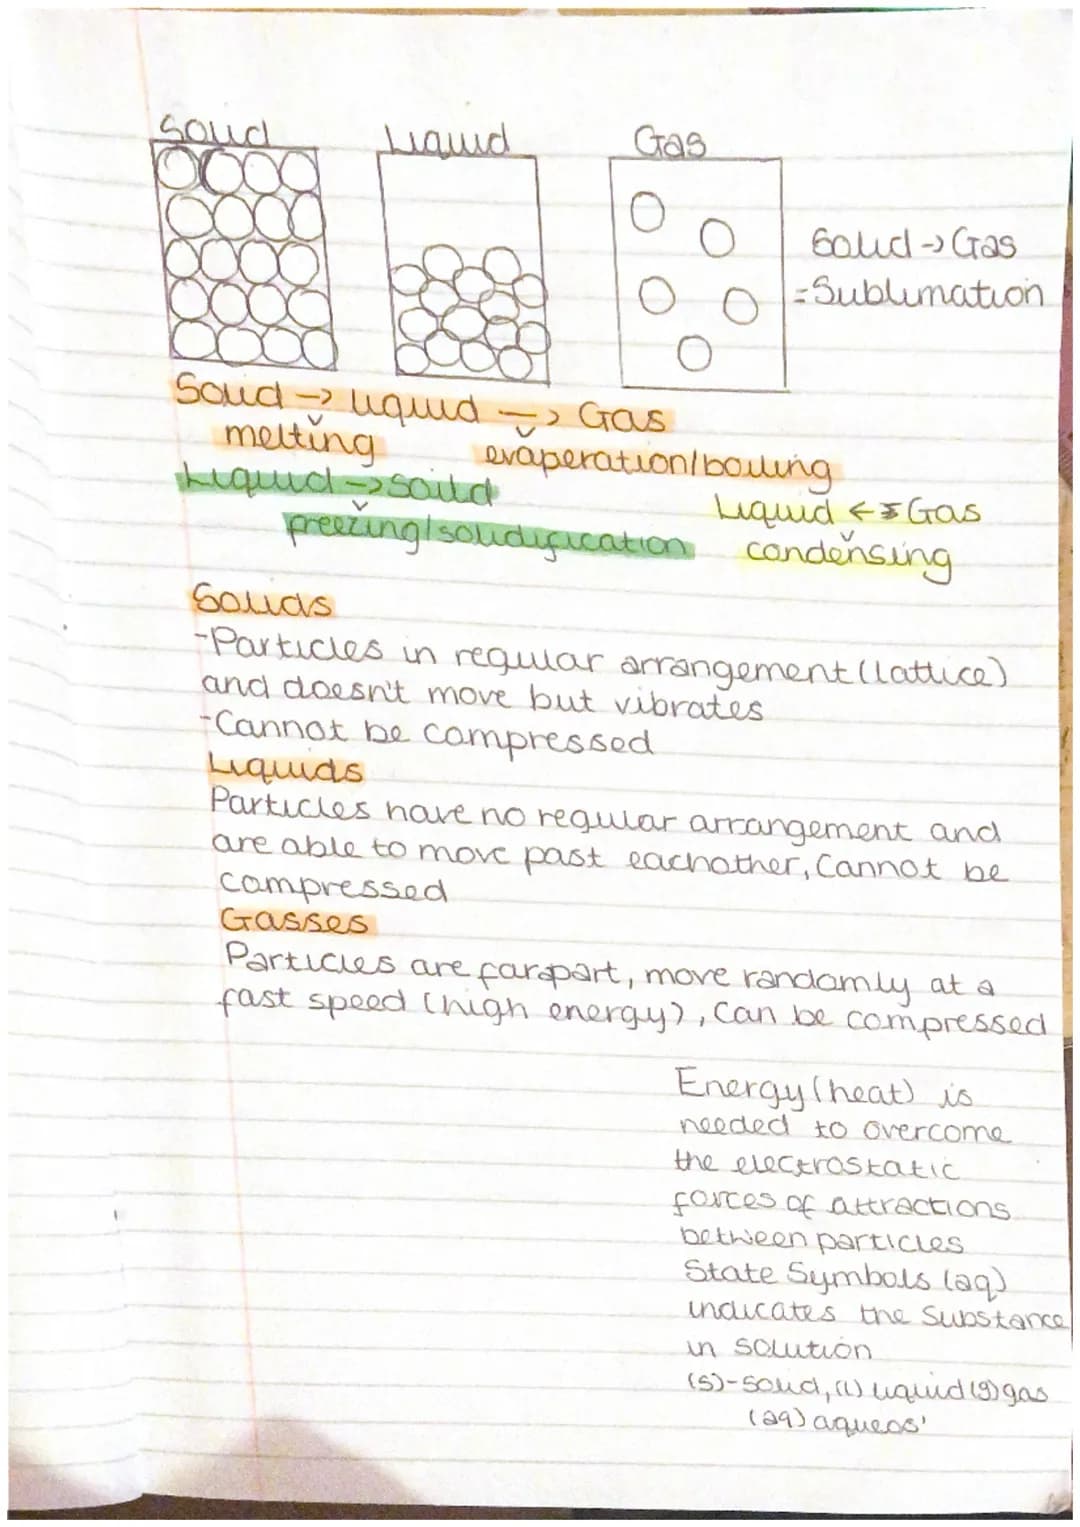 Solid Liquid Gas
Solid -> Gas
= Sublimation
Solid -> liquid -> Gas
melting evaperation/boiling
Liquid -> soild
freezing/solidification
Liquid <- Gas
condensing
Solids
-Particles in regular arrangement (lattice)
and doesn't move but vibrates
-Cannot be compressed
Liquids
Particles have no regular arrangement and
are able to move past eachother, Cannot be
compressed
Gasses
Particles are farapart, move randomly at a
fast speed (high energy), Can be compressed
Energy (heat) is
needed to overcome
the electrostatic
forces of attractions
between particles
State Symbols (aq)
indicates the Substance
in solution
(s)-solid, (l) liquid (g) gas
(aq) aqueos'